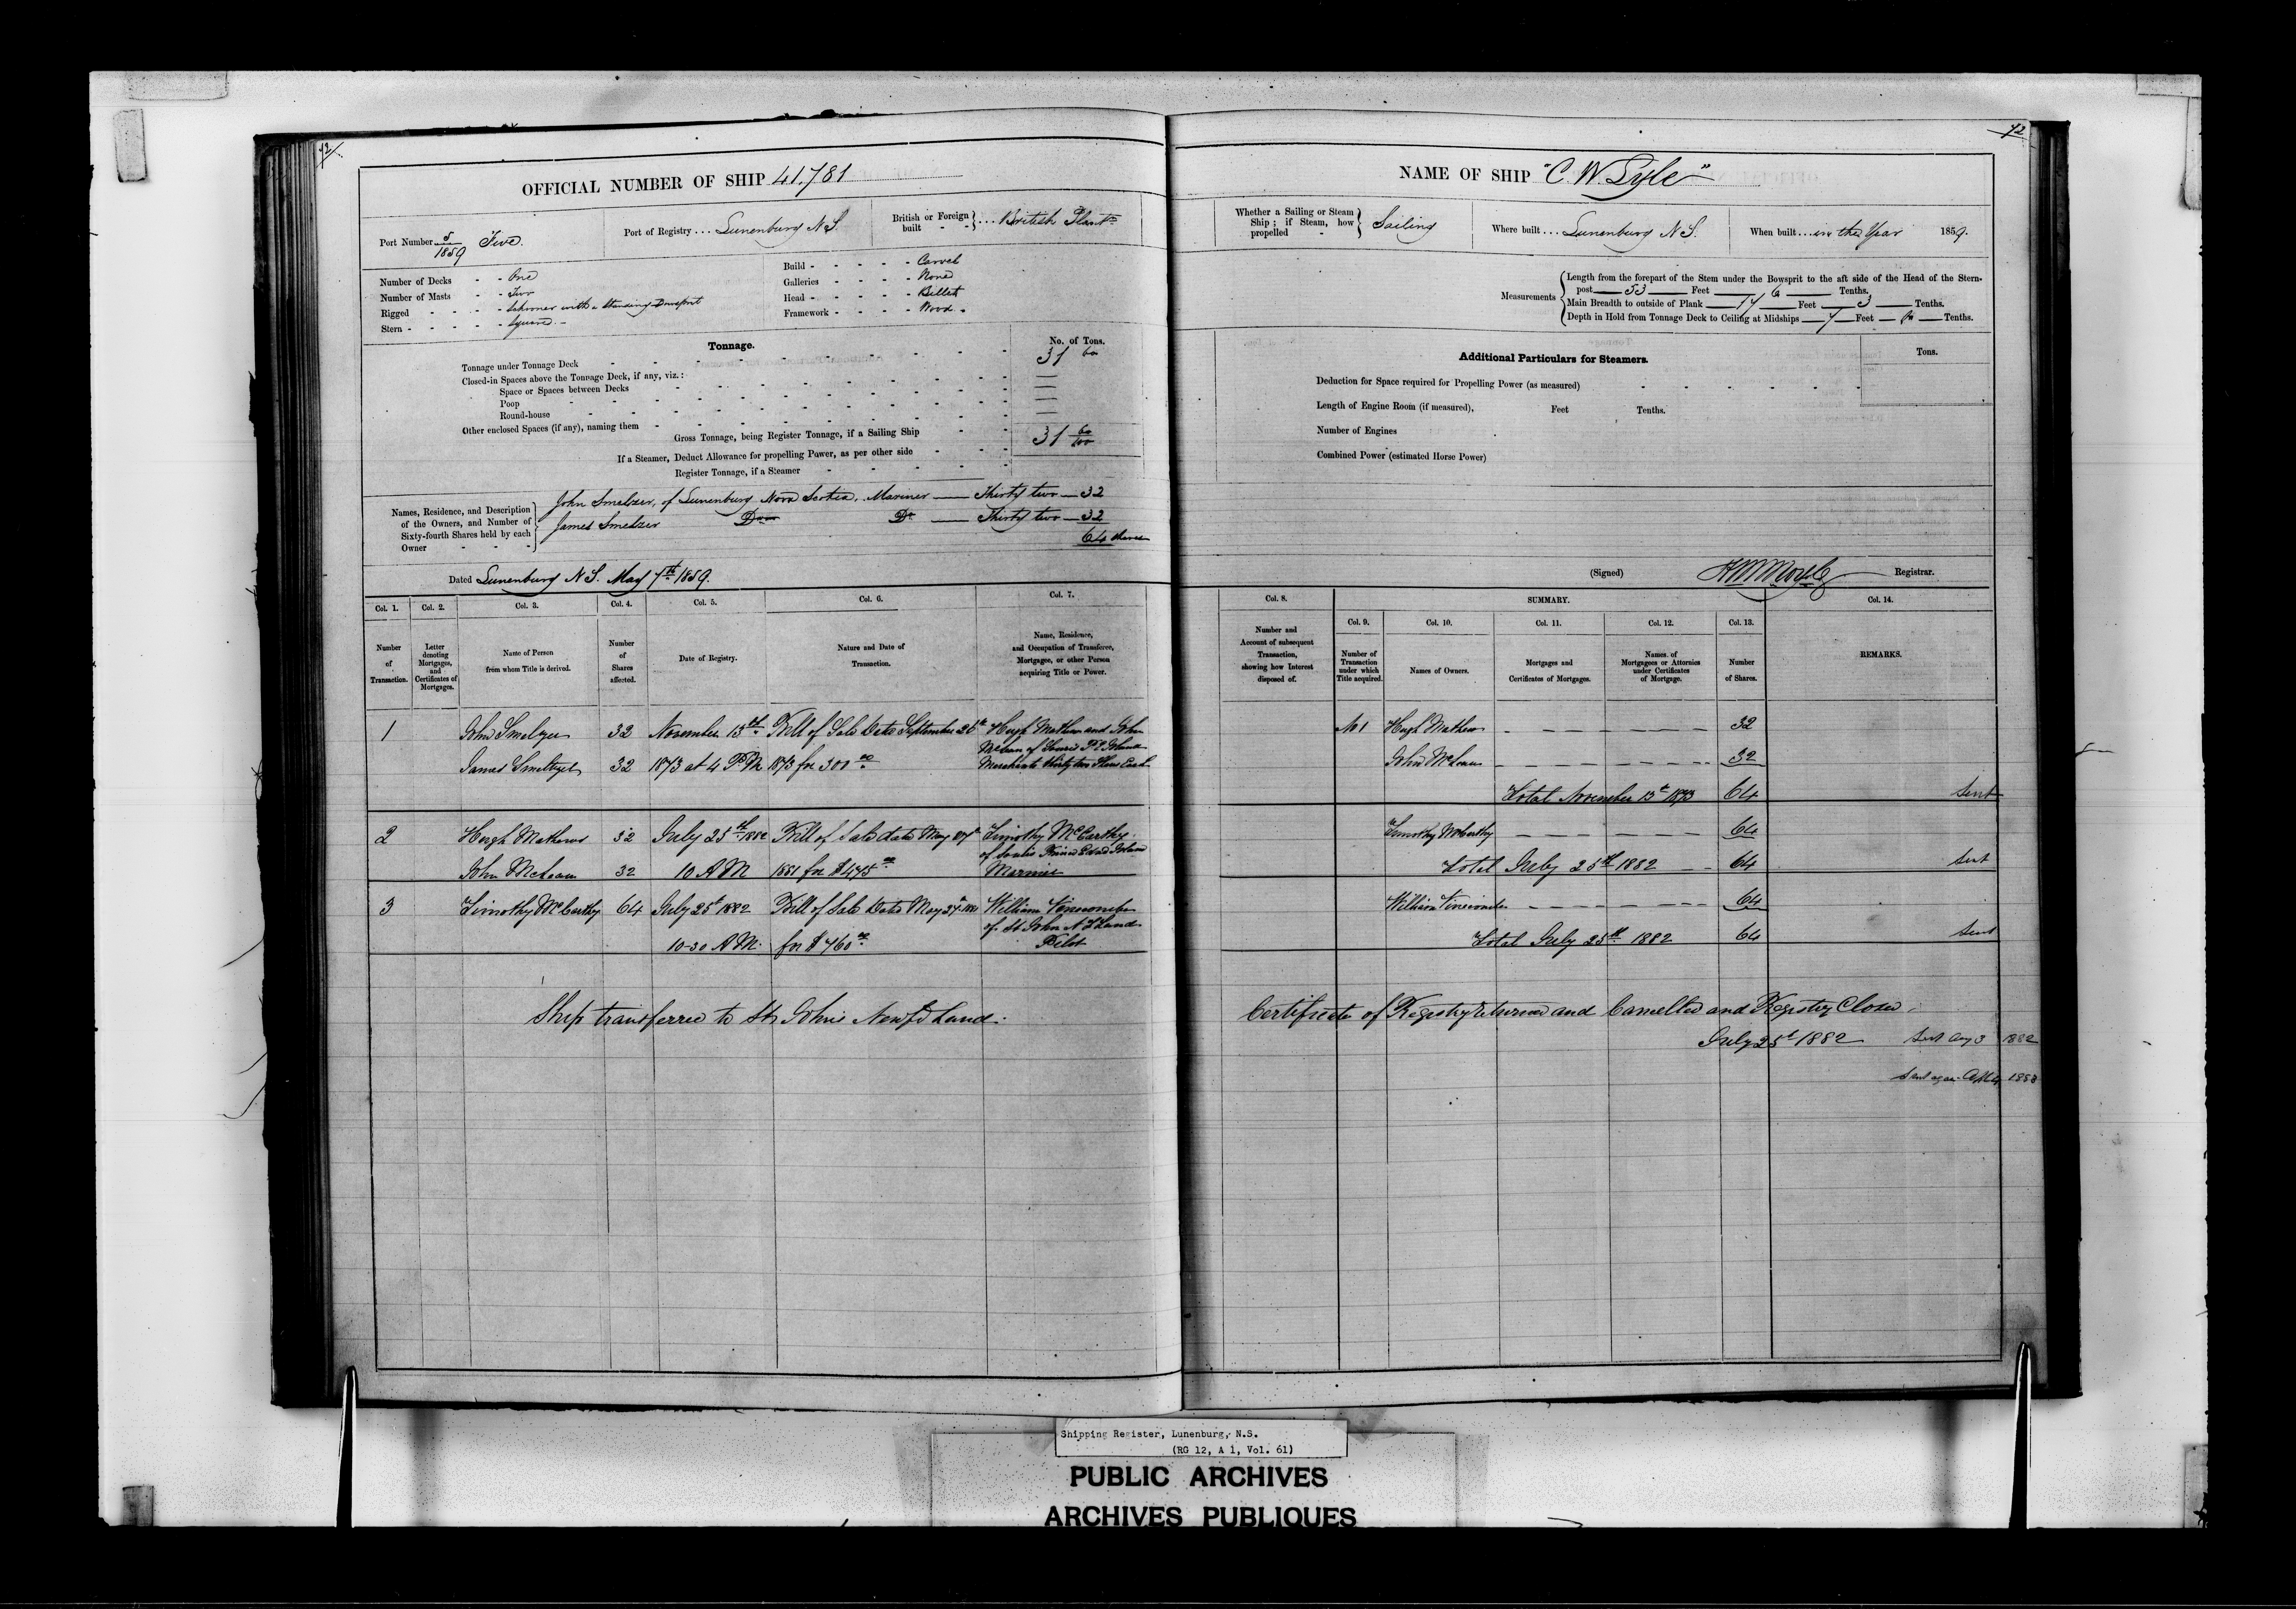 42
OFFICIAL NUMBER OF SHIP 41.781
Port Number 5/1859 Five.
Port of Registry ... Lunenburg N S.
British or Foreign built - - } ... British Plantn
Number of Decks - - One
Number of Masts - - Two
Rigged - - - - Schooner with a Standing Bowsprit
Stern - - - - - Square -
Build - - - - - Carvel
Galleries - - - - None
Head - - - - - Billet
Framework - - - - Wood -
Tonnage. No. of Tons.
Tonnage under Tonnage Deck 31 60
Closed-in Spaces above the Tonnage Deck, if any, viz.:
Space or Spaces between Decks —
Poop —
Round-house —
Other enclosed Spaces (if any), naming them
Gross Tonnage, being Register Tonnage, if a Sailing Ship 31 60/100
If a Steamer, Deduct Allowance for propelling Power, as per other side
Register Tonnage, if a Steamer
Names, Residence, and Description of the Owners, and Number of Sixty-fourth Shares held by each Owner
John Smelzer, of Lunenburg Nova Scotia. Mariner — Thirty two — 32
James Smelzer Do Do — Thirty two — 32
64 shares
Dated Lunenburg N S. May 7th 1859.
Col. 1. Col. 2. Col. 3. Col. 4. Col. 5. Col. 6. Col. 7.
Number of Transaction.
Letter denoting Mortgages, and Certificates of Mortgages.
Name of Person from whom Title is derived.
Number of Shares affected.
Date of Registry.
Nature and Date of Transaction.
Name, Residence, and Occupation of Transferee, Mortgagee, or other Person acquiring Title or Power.
1 John Smelzer 32 November 13th Bill of Sale Date September 25th Hugh Mathews and John
McLean of Souris P E Island
James Smeltzer 32 1873 at 4 P M 1873 for 300 00 Merchants thirty two Shares Each
2 Hugh Mathews 32 July 25th 1882 Bill of Sale date May Timothy McCarthy
of Souris Prince Edward Island
John McLean 32 10 A M 1881 for $475 00 Mariner
3 Timothy McCarthy 64 July 25th 1882 Bill of Sale Date May 27th 1881 William
of St John N F Land
10-30 A M. for $760 00 Pilot
Ship transferred to St Johns Newfd Land.
42
NAME OF SHIP "C. W. Lyle"
Whether a Sailing or Steam Ship; if Steam, how propelled - } Sailing
Where built ... Lunenburg N S.
When built ... in the Year 1859.
Measurements
Length from the forepart of the Stem under the Bowsprit to the aft side of the Head of the Stern-
post — 53 — Feet — 6 — Tenths.
Main Breadth to outside of Plank — 17 — Feet — 3 — Tenths.
Depth in Hold from Tonnage Deck to Ceiling at Midships — 7 — Feet — — Tenths.
Additional Particulars for Steamers. Tons.
Deduction for Space required for Propelling Power (as measured)
Length of Engine Room (if measured), Feet Tenths.
Number of Engines
Combined Power (estimated Horse Power)
(Signed) Registrar.
Col. 8. SUMMARY. Col. 14.
Col. 9. Col. 10. Col. 11. Col. 12. Col. 13.
Number and Account of subsequent Transaction, showing how Interest disposed of.
Number of Transaction under which Title acquired.
Names of Owners.
Mortgages and Certificates of Mortgages.
Names of Mortgagees or Attornies under Certificates of Mortgage.
Number of Shares.
REMARKS.
No 1 Hugh Mathews 32
John McLean 32
Total November 13th 1873 64 Sent
Timothy McCarthy 64
Total July 25th 1882 64 Sent
William 64
Total July 25th 1882 64 Sent
Certificate of Registry returned and Cancelled and Registry Closed.
July 25th 1882 Sent Aug 3 1882
Sent again 1883
Shipping Register, Lunenburg, N.S.
(RG 12, A 1, Vol. 61)
PUBLIC ARCHIVES
ARCHIVES PUBLIQUES